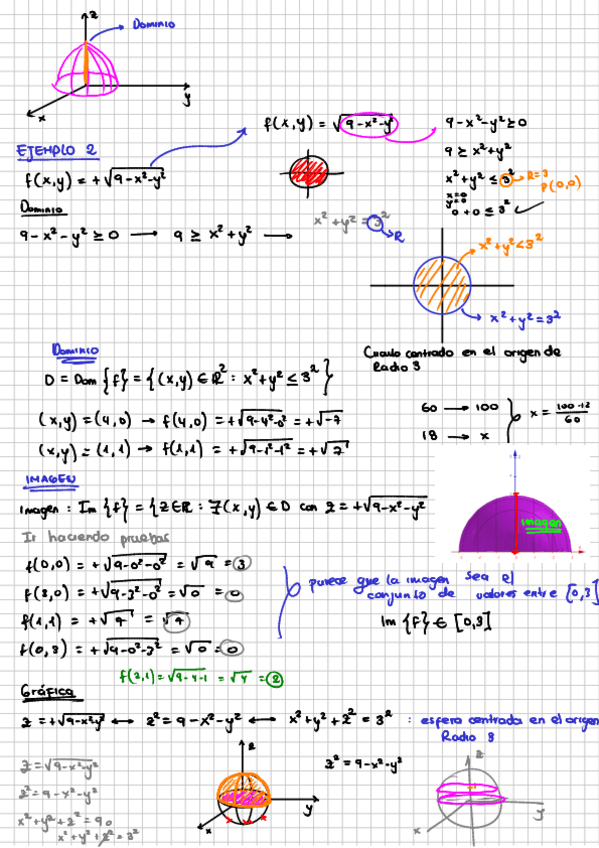 z
Dominio
y
x
f(x,y) = √9-x²-y²
9-x²-y² ≥ 0
EJEMPLO 2
9 ≥ x²+y²
f(x,y) = +√9-x²-y²
x²+y² ≤ 3² → R=3
P(0,0)
x=0
y=0
0+0 ≤ 3²
Dominio
9-x²-y² ≥ 0 → 9 ≥ x²+y² →
x²+y² = 3²
R
x²+y² < 3²
x²+y² = 3²
Circulo centrado en el origen de
Radio 3
Dominio
D = Dom {f} = {(x,y) ∈ ℝ² : x²+y² ≤ 3²}
(x,y) = (4,0) → f(4,0) = +√9-4²-0² = +√-7
(x,y) = (1,1) → f(1,1) = +√9-1²-1² = +√7
60 → 100
18 → x
x = 100·18 / 60
IMAGEN
Imagen : Im {f} = {z∈ℝ : ∃(x,y) ∈ D con z = +√9-x²-y²
imagen
Ir haciendo pruebas
f(0,0) = +√9-0²-0² = √9 = 3
f(3,0) = +√9-3²-0² = √0 = 0
f(1,1) = +√7 = √7
f(0,3) = +√9-0²-3² = √0 = 0
parece que la imagen sea el
conjunto de valores entre [0,3]
Im {f} ∈ [0,3]
f(2,1) = √9-4-1 = √4 = 2
Gráfica
z = +√9-x²-y² ↔ z² = 9-x²-y² ↔ x²+y²+z² = 3² : esfera centrada en el origen
Radio 3
z = √9-x²-y²
z² = 9-x²-y²
x²+y²+z² = 9
x²+y²+z² = 3²
z
y
x
z² = 9-x²-y²
z
y
x